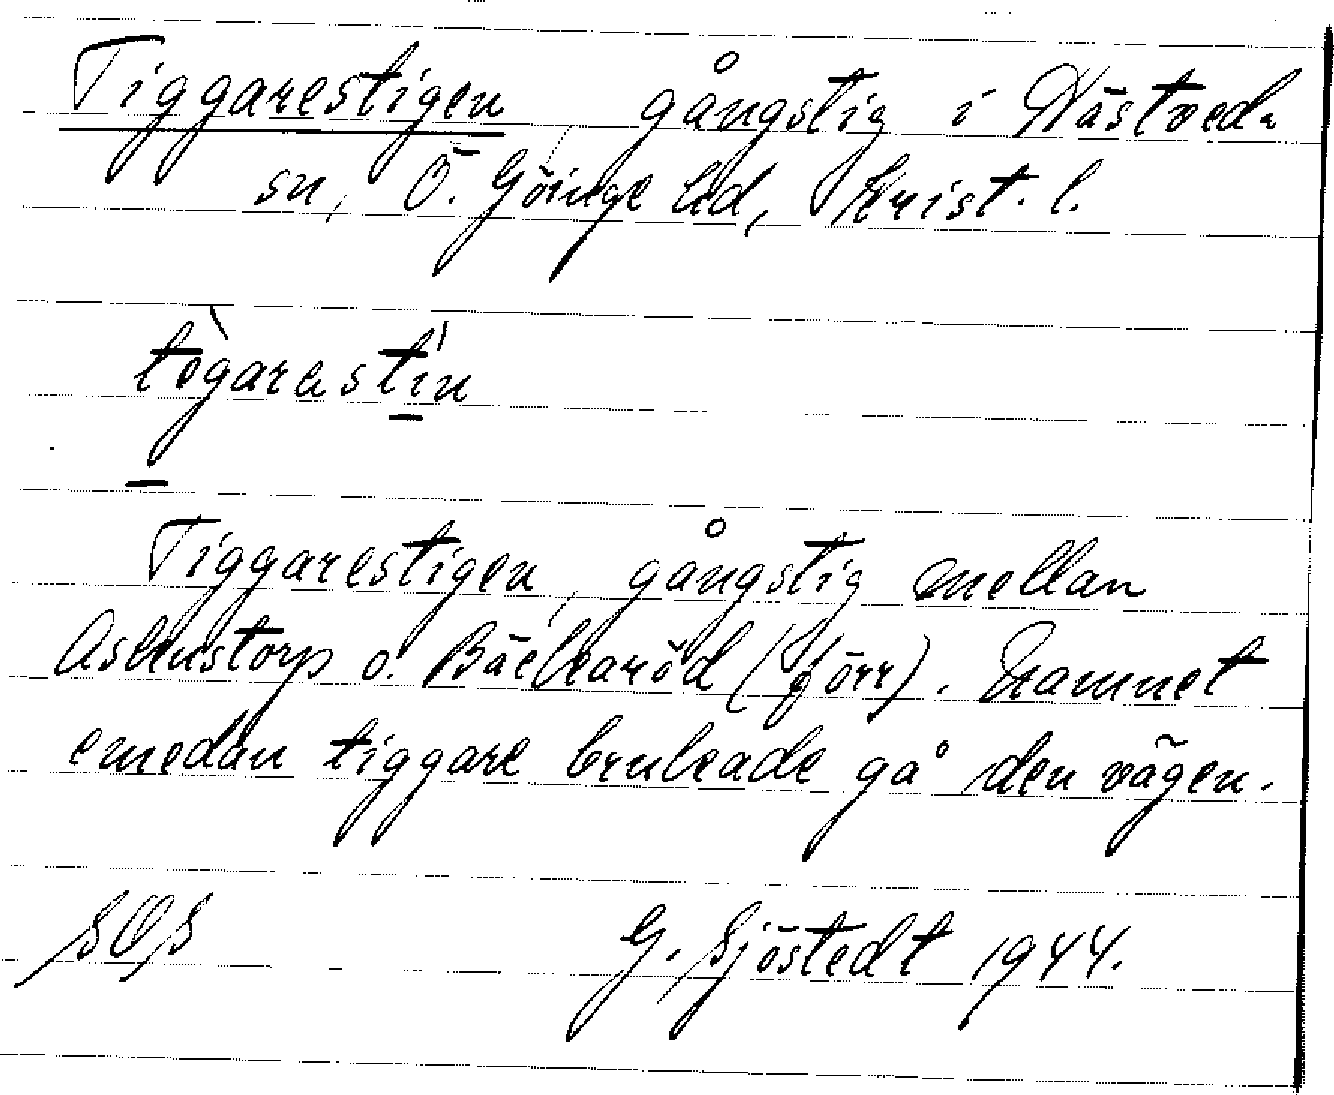 Tiggarestigen, gångstig i Västveds
sn, Ö. Göinge hd, Krist. l.
tègarastin
Tiggarestigen, gångstig mellan
Askenstorp o. Bäckaröd (förr). Namnet
emedan tiggare brukade gå den vägen.
SOS G. Sjöstedt 1944.